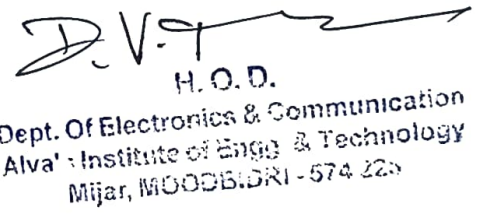 D.V.T
H. O. D.
Dept. Of Electronics & Communication
Alva's Institute of Engg. & Technology
Mijar, MOODBIDRI - 574 225